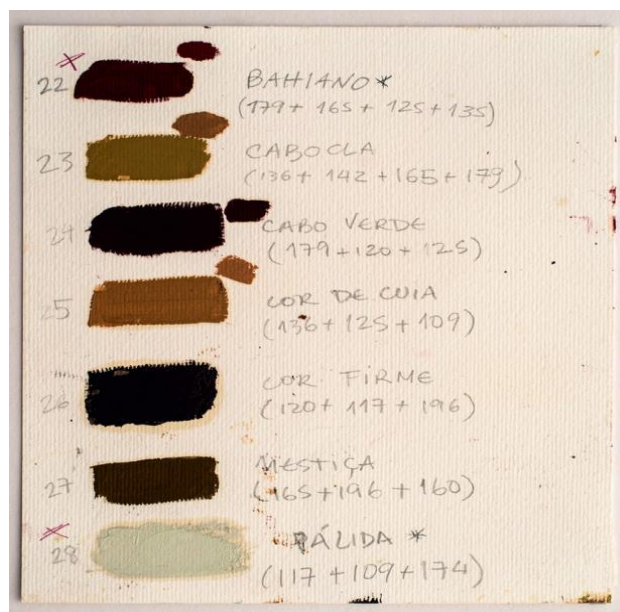 22 BAHIANO*
(179 + 165 + 125 + 135)
23 CABOCLA
(136 + 142 + 165 + 179)
24 CABO VERDE
(179 + 120 + 125)
25 COR DE CUIA
(136 + 125 + 109)
26 COR FIRME
(120 + 117 + 196)
27 MESTIÇA
(165 + 196 + 160)
28 PÁLIDA *
(117 + 109 + 174)